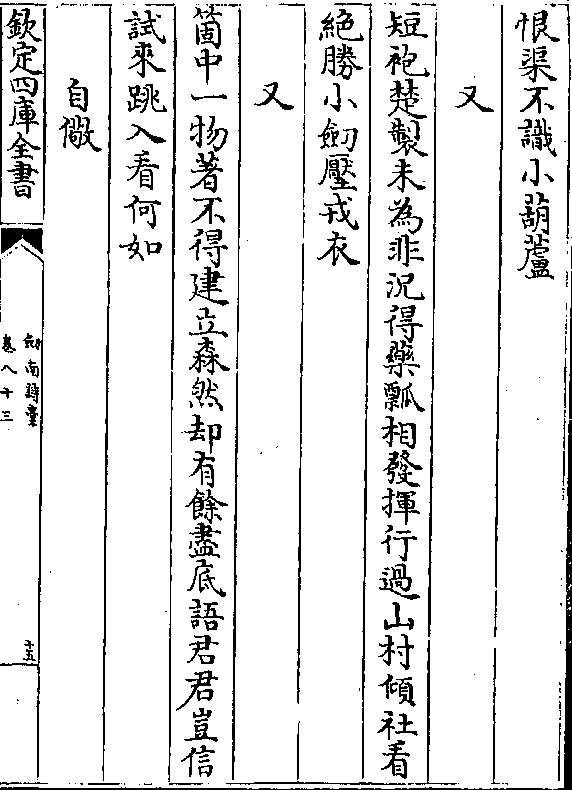 恨渠不識小葫蘆
又
短袍楚製未為非況得藥瓢相發揮行過山村傾社看
絶勝小劒壓戎衣
又
箇中一物著不得建立森然却有餘盡底語君君豈信
試來跳入看何如
自儆
欽定四庫全書
劔南詩藁
卷八十三
十五